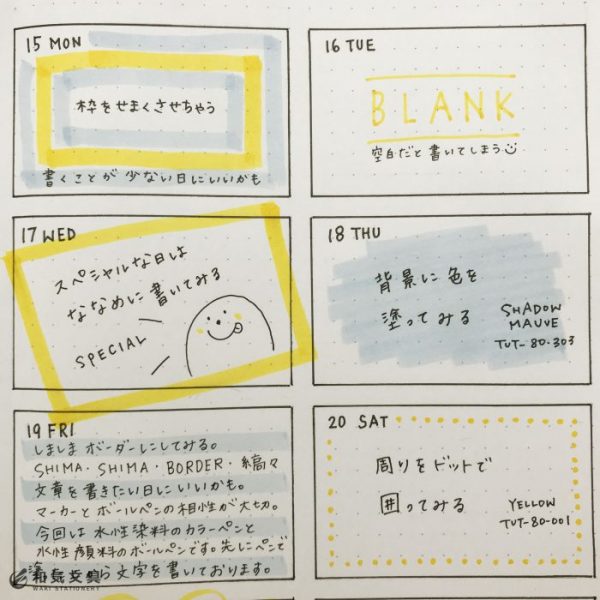 15 MON
枠をせまくさせちゃう
書くことが少ない日にいいかも
16 TUE
BLANK
空白だと書いてしまう
17 WED
スペシャルな日は
ななめに書いてみる
SPECIAL
18 THU
背景に色を
塗ってみる
SHADOW
MAUVE
TUT-80-303
19 FRI
しましまボーダーにしてみる。
SHIMA・SHIMA・BORDER・縞々
文章を書きたい日にいいかも。
マーカーとボールペンの相性が大切。
今回は水性染料のカラーペンと
水性顔料のボールペンです。先にペンで
から文字を書いております。
20 SAT
周りをドットで
囲ってみる
YELLOW
TUT-80-001
和気文具
WAKI STATIONERY